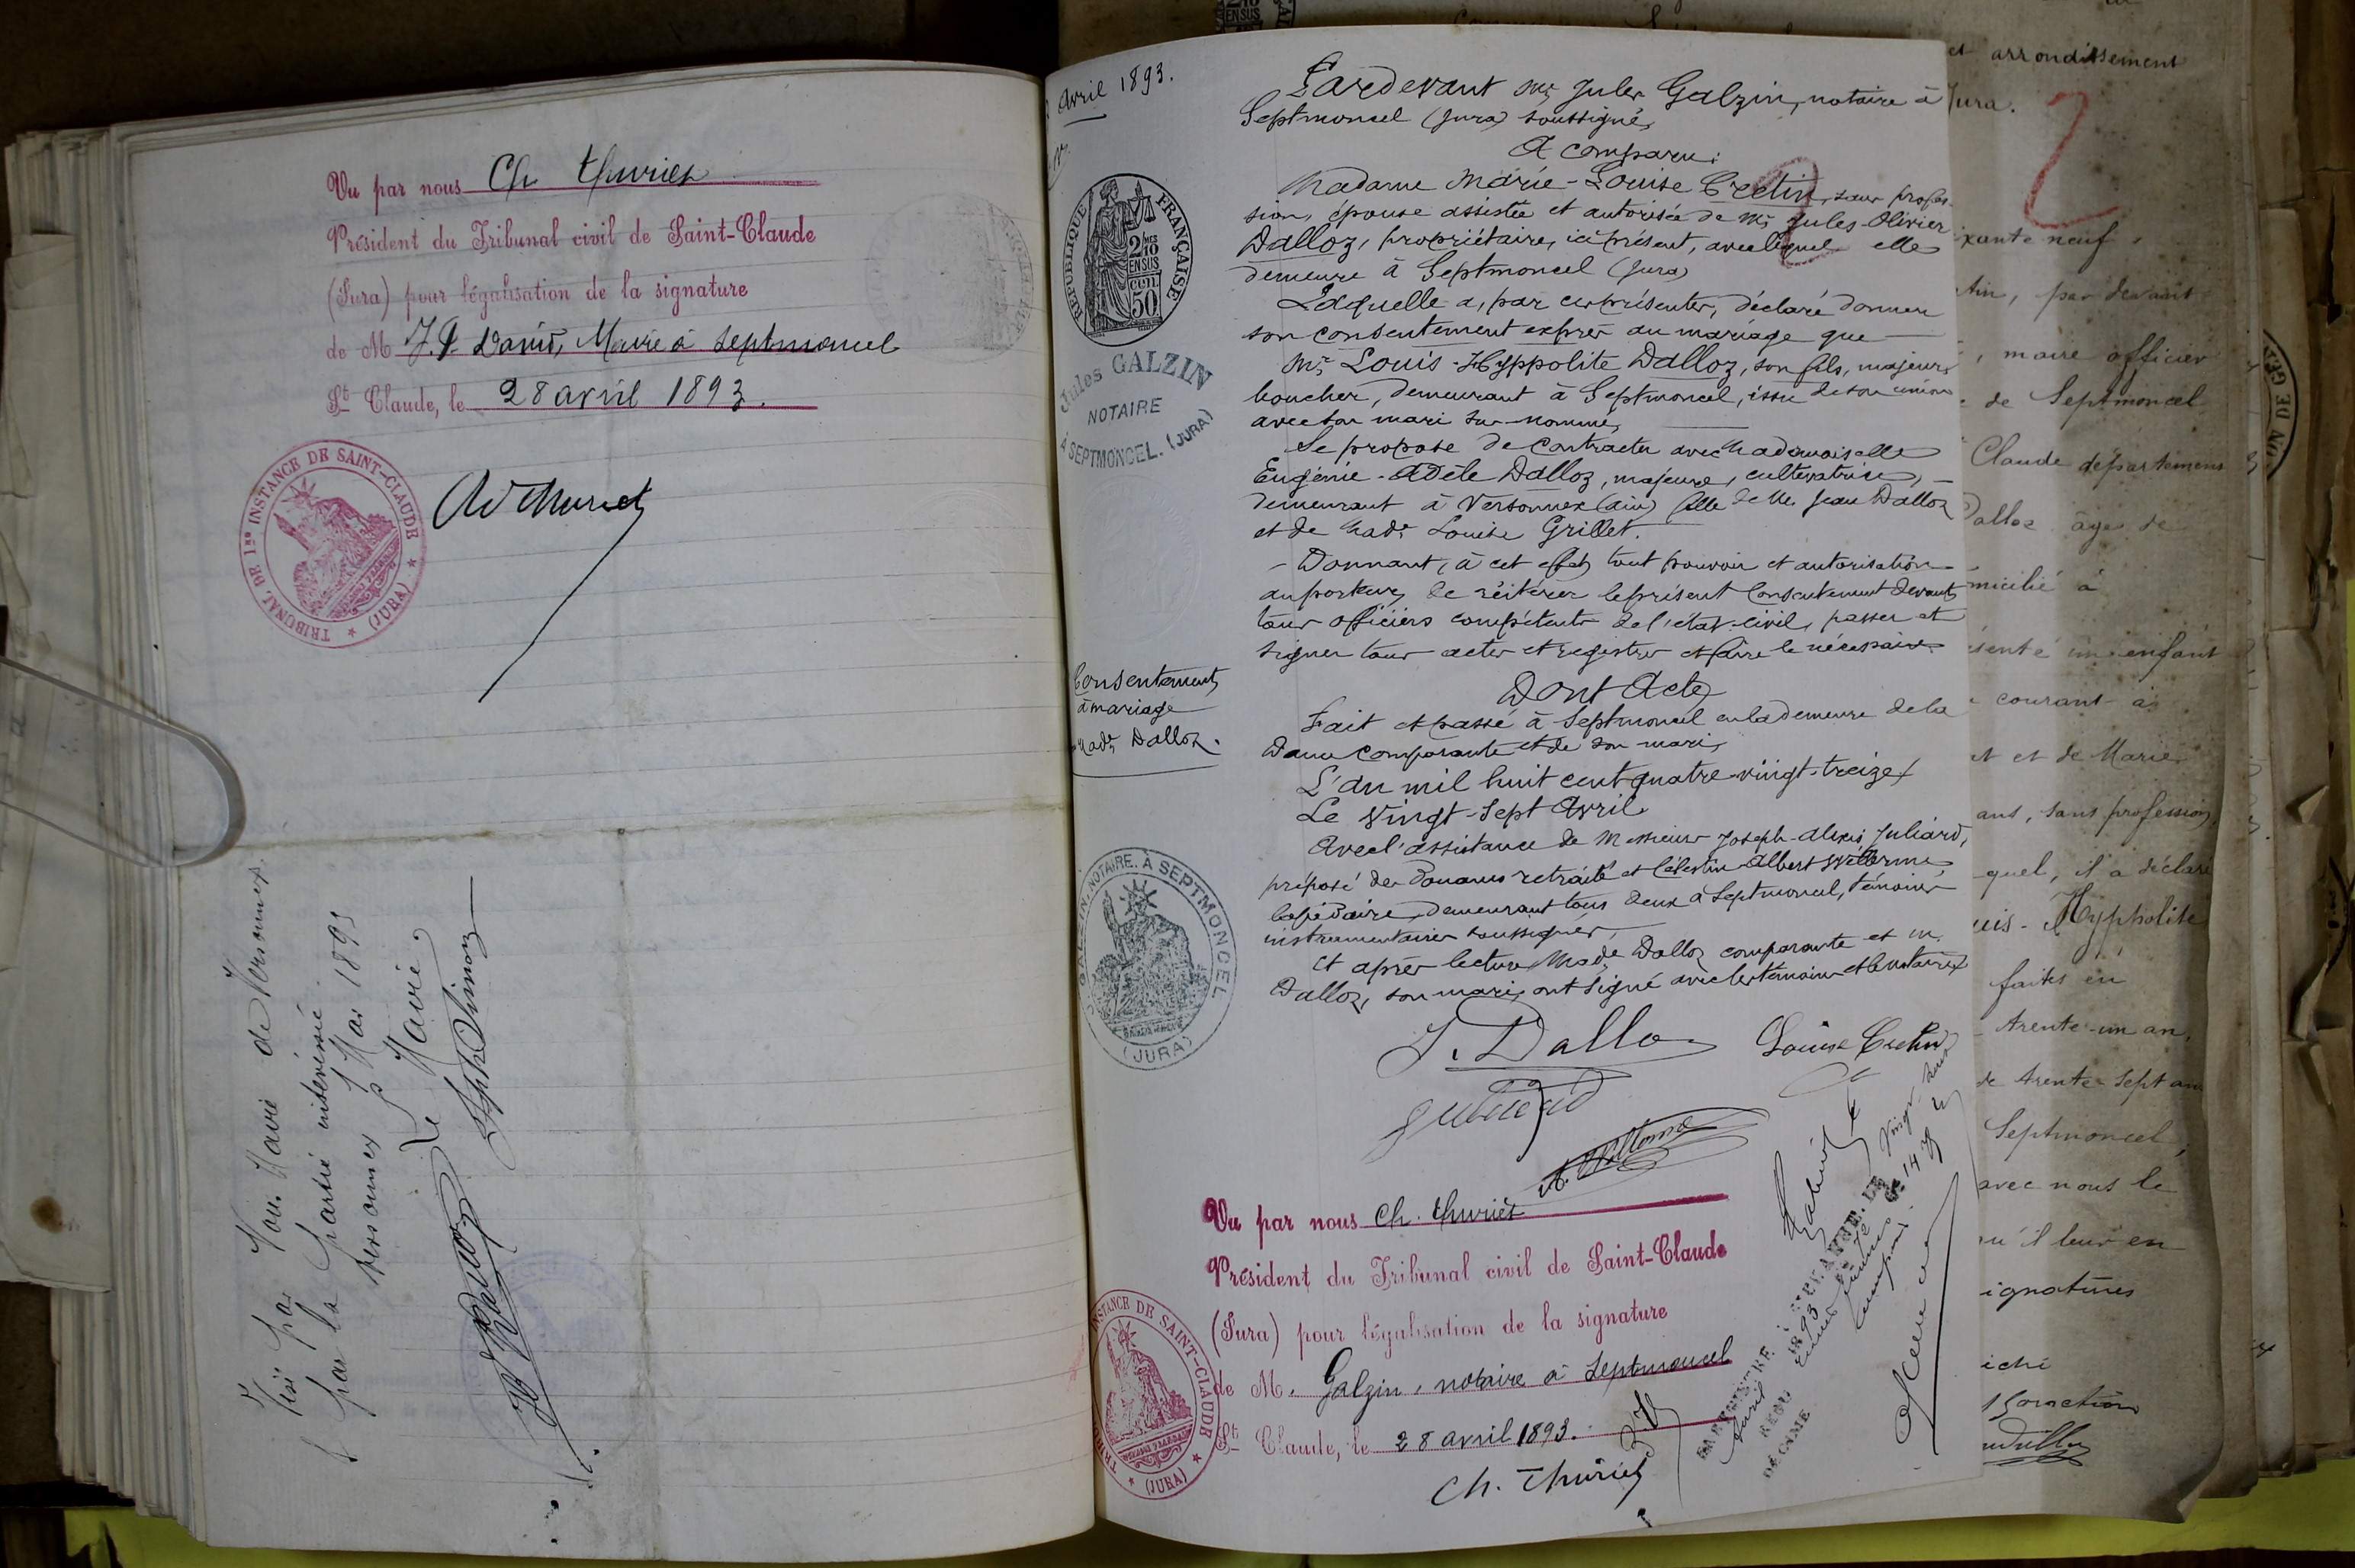 Vu par nous Ch Thuriet
Président du Tribunal civil de Saint-Claude
(Jura) pour légalisation de la signature
de M J. P. David, Maire à Septmoncel
St Claude, le 28 avril 1893.
TRIBUNAL DE 1re INSTANCE DE SAINT-CLAUDE
★ (JURA) ★
Visé par Nous Maire de Versonnex
par la partie intéressée
Versonnex 1893
Le Maire
Avril 1893.
RÉPUBLIQUE FRANÇAISE
2/10 MES
EN SUS
CEN.
50
Jules GALZIN
NOTAIRE
À SEPTMONCEL. (JURA)
Consentement
à mariage
Made Dalloz.
GALZIN, NOTAIRE, À SEPTMONCEL
(JURA)
Pardevant Me Jules Galzin, notaire à
Septmoncel (Jura) soussigné,
A comparu:
Madame Marie-Louise Cretin, sans profes-
sion, épouse assistée et autorisée de Mr Jules-Olivier
Dalloz, propriétaire, ici présent, avec lequel elle
demeure à Septmoncel (Jura)
Laquelle a, par ces présentes, déclaré donner
son consentement exprès au mariage que
Mr Louis-Hyppolite Dalloz, son fils, majeur,
boucher, demeurant à Septmoncel, issu de son union
avec son mari sus-nommé,
Se propose de contracter avec Mademoiselle
Eugénie-Adèle Dalloz, majeure, cultivatrice,
demeurant à Versonnex (Ain) fille de M. Jean Dalloz
et de Made Louise Grillet.
- Donnant, à cet effet, tout pouvoir et autorisation
au porteur, de réitérer le présent consentement devant
tous officiers compétents de l'état-civil, passer et
signer tous actes et registres et faire le nécessaire
Dont Acte
Fait et passé à Septmoncel en la demeure de la
Dame comparante et de son mari,
L'an mil huit cent quatre-vingt-treize,
Le vingt-sept Avril
Avec l'assistance de Messieurs Joseph-Alexis Juliard,
préposé des Douanes retraité et Célestin-Albert
lapidaire, demeurant tous deux à Septmoncel, témoins
instrumentaires soussignés,
Et après lecture, Made Dalloz comparante et M.
Dalloz, son mari, ont signé avec les témoins et le notaire
J. Dalloz
Louise Cretin
Juliard
Vu par nous Ch. Thuriet
Président du Tribunal civil de Saint-Claude
(Jura) pour légalisation de la signature
de M. Galzin, notaire à Septmoncel
St Claude, le 28 avril 1893.
Ch. Thuriet
INSTANCE DE SAINT-CLAUDE
★ (JURA) ★
1893
et arrondissement
Jura.
2
xante neuf
tin, par devant
, maire officier
de Septmoncel
Claude département
Dalloz âgé de
micilié à
senté un enfant
courant à
et de Marie
ans, sans profession,
quel, il a déclaré
uis-Hyppolite
faites en
trente-un an,
de trente-sept ans
Septmoncel,
avec nous le
qu'il leur en
ignatures